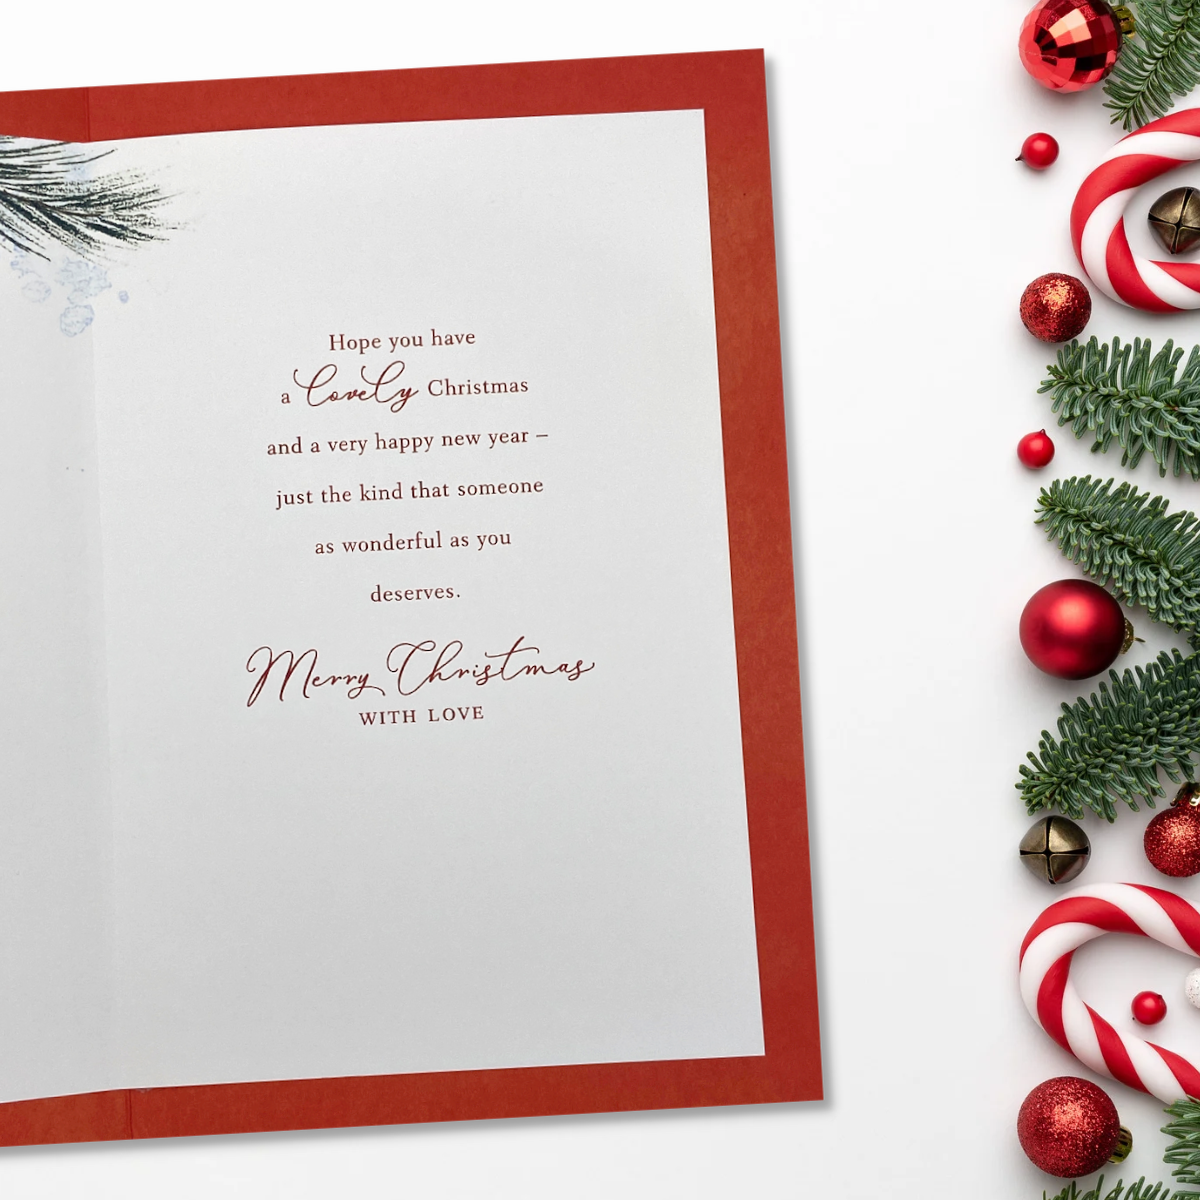 Hope you have
a lovely Christmas
and a very happy new year –
just the kind that someone
as wonderful as you
deserves.
Merry Christmas
WITH LOVE